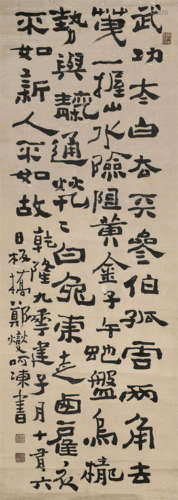 武功太白去天參伯孤雲兩角去
天一握山水險阻黃金子午虵盤鳥櫳
勢與天通煢〻白兔東走西雇衣
不如新人不如故乾隆九年建子月十有六
日板橋鄭燮呵凍書